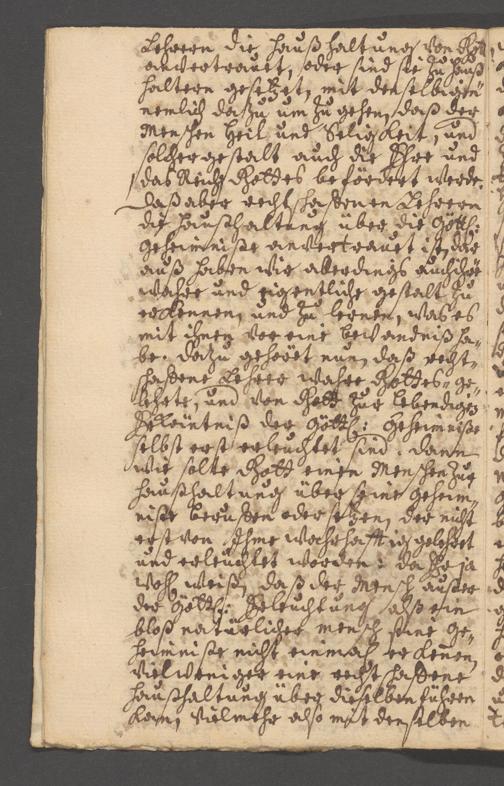 Lehrern die Haußhaltung von Gott
anvertrauet, oder sind sie zu Hauß
haltern gesetzet, mit denselbigen
nemlich dazu um zu gehen, daß der
Menschen Heil und Seligkeit, und
solchergestalt auch die Ehre und
das Reich Gottes befördert werde.
Daß aber rechtschaffenen Lehrern
die Haußhaltung über die Göttl:
Geheimniße anvertrauet ist, dar
auß haben wir allerdings auch ihre
wahre und eigentliche gestalt zu
erkennen, und zu lernen, was es
mit ihnen vor eine bewandniß ha-
be. Dazu gehöret nun, daß recht-
schaffene Lehrer wahre Gottes-ge-
lehrte, und von Gott zur lebendigen
Erkäntniß der Göttl: Geheimniße
selbst erst erleuchtet sind. Dann
wie solte Gott einen Menschen zur
Haußhaltung über seine Geheim-
niße beruffen oder setzen, der nicht
erst von Ihme wahrhafftig gelehret
und erleuchtet worden? da Er ja
wohl weiß, daß der Mensch ausser
der Göttl: Erleuchtung alß ein
bloß natürlicher mensch seine Ge-
heimniße nicht einmahl erkennen,
vielweniger eine rechtschaffene
Haußhaltung über dieselben führen
kan, vielmehr also mit denselben